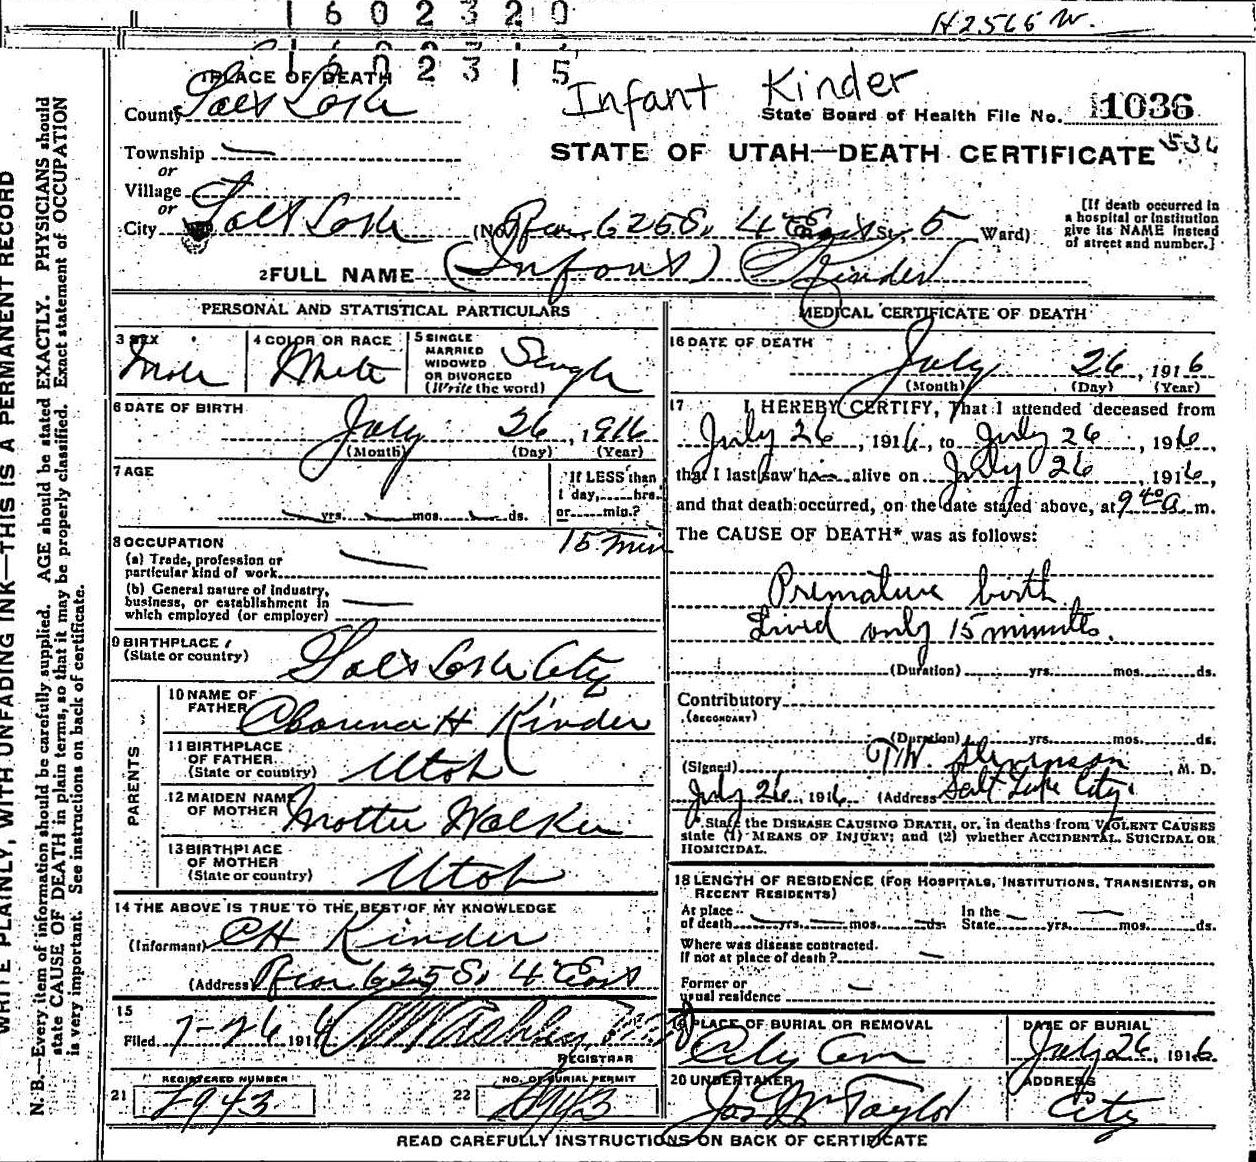 1602320
H2565 W.
1602315
1 PLACE OF DEATH
Infant Kinder
County Salt Lake
State Board of Health File No. 1036
Township —
or
STATE OF UTAH—DEATH CERTIFICATE 536
Village
or
City Salt Lake (No. Rear 625 S. 4 East St., 5 Ward)
[If death occurred in
a hospital or institution
give its NAME instead
of street and number.]
2 FULL NAME (Infant) Kinder
PERSONAL AND STATISTICAL PARTICULARS
3 SEX
Male
4 COLOR OR RACE
White
5 SINGLE
MARRIED
WIDOWED
OR DIVORCED
(Write the word)
Single
6 DATE OF BIRTH
July 26, 1916
(Month) (Day) (Year)
7 AGE
yrs. mos. ds.
If LESS than
1 day,......hrs.
or......min.?
15 min
8 OCCUPATION
(a) Trade, profession or
particular kind of work
(b) General nature of industry,
business, or establishment in
which employed (or employer)
9 BIRTHPLACE
(State or country)
Salt Lake City
PARENTS
10 NAME OF
FATHER
H Kinder
11 BIRTHPLACE
OF FATHER
(State or country)
Utah
12 MAIDEN NAME
OF MOTHER
Walker
13 BIRTHPLACE
OF MOTHER
(State or country)
Utah
14 THE ABOVE IS TRUE TO THE BEST OF MY KNOWLEDGE
(Informant) CH Kinder
(Address) Rear 625 S. 4 East
15
Filed 7-26 1916
REGISTRAR
21
REGISTERED NUMBER
22
NO. OF BURIAL PERMIT
MEDICAL CERTIFICATE OF DEATH
16 DATE OF DEATH
July 26, 1916
(Month) (Day) (Year)
17 I HEREBY CERTIFY, That I attended deceased from
July 26, 1916, to July 26, 1916
that I last saw him alive on July 26, 1916,
and that death occurred, on the date stated above, at 9 40 a. m.
The CAUSE OF DEATH* was as follows:
Premature birth
Lived only 15 minutes.
(Duration) yrs. mos. ds.
Contributory
(SECONDARY)
(Duration) yrs. mos. ds.
(Signed) T.W. Stevenson, M. D.
July 26, 1916 (Address) Salt Lake City.
*State the DISEASE CAUSING DEATH, or, in deaths from VIOLENT CAUSES
state (1) MEANS OF INJURY; and (2) whether ACCIDENTAL, SUICIDAL OR
HOMICIDAL.
18 LENGTH OF RESIDENCE (FOR HOSPITALS, INSTITUTIONS, TRANSIENTS, OR
RECENT RESIDENTS)
At place
of death yrs. mos. ds.
In the
State yrs. mos. ds.
Where was disease contracted.
If not at place of death?
Former or
usual residence
19 PLACE OF BURIAL OR REMOVAL
City Cem
DATE OF BURIAL
July 26, 1916
20 UNDERTAKER
Jos Wm Taylor
ADDRESS
City
READ CAREFULLY INSTRUCTIONS ON BACK OF CERTIFICATE
WRITE PLAINLY, WITH UNFADING INK—THIS IS A PERMANENT RECORD
N. B.—Every item of information should be carefully supplied. AGE should be stated EXACTLY. PHYSICIANS should
state CAUSE OF DEATH in plain terms, so that it may be properly classified. Exact statement of OCCUPATION
is very important. See instructions on back of certificate.